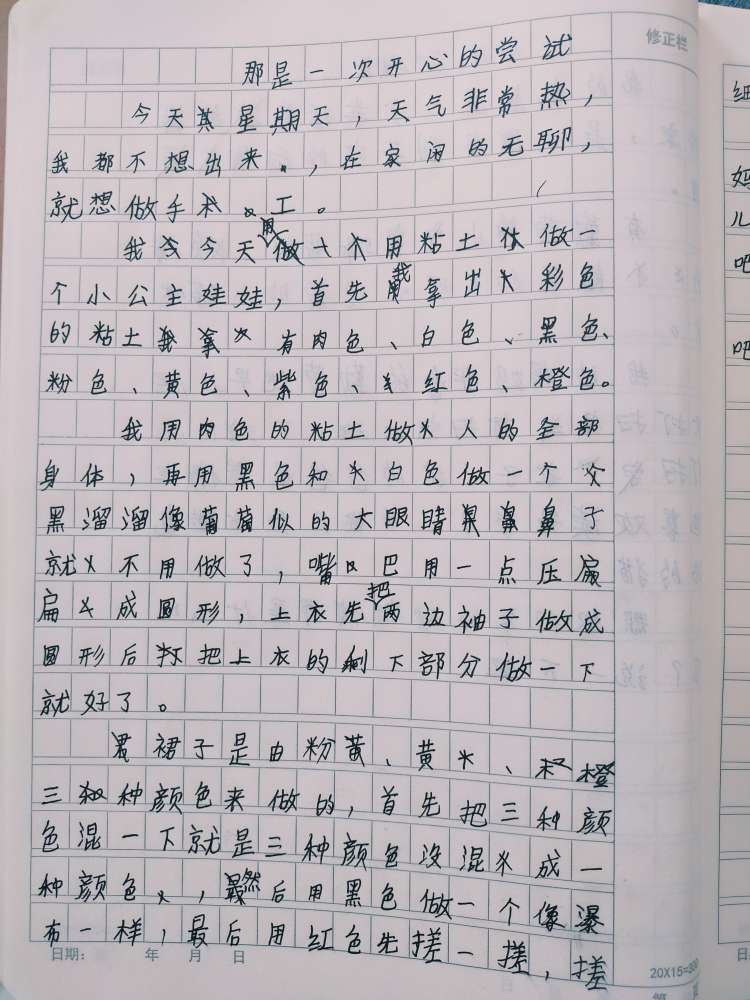 修正栏
那是一次开心的尝试
今天其星期天，天气非常热，
我都不想出来，在家闲的无聊，
就想做手工。
我今天用做一个用粘土做一
个小公主娃娃，首先我拿出彩色
的粘土有肉色、白色、黑色、
粉色、黄色、紫色、红色、橙色。
我用肉色的粘土做人的全部
身体，再用黑色和白色做一个
黑溜溜像葡萄似的大眼睛鼻子
就不用做了，嘴巴用一点压扁
扁成圆形，上衣先把两边袖子做成
圆形后把上衣的剩下部分做一下
就好了。
裙子是由粉黄、黄、橙
三种颜色来做的，首先把三种颜
色混一下就是三种颜色没混成一
种颜色，最然后用黑色做一个像瀑
布一样，最后用红色先搓一搓，搓
日期： 年 月 日
20X15=300
细
妈
儿
吧
吧